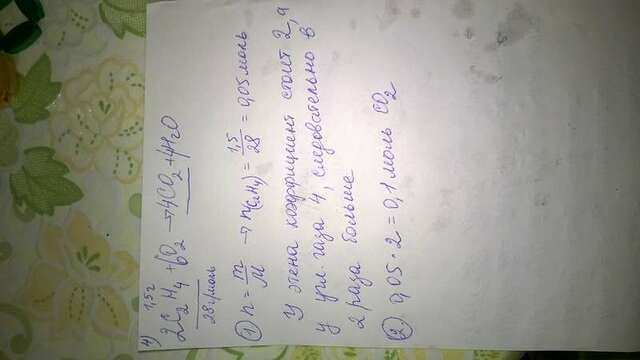 4) 1,5г
2C2H4 + 6O2 → 4CO2 + 4H2O
28г/моль
① n = m/M → n(C2H4) = 1,5/28 = 0,05 моль
У этена коэффициент стоит 2, а
у угл. газа 4, следовательно в
2 раза больше
② 0,05 · 2 = 0,1 моль CO2